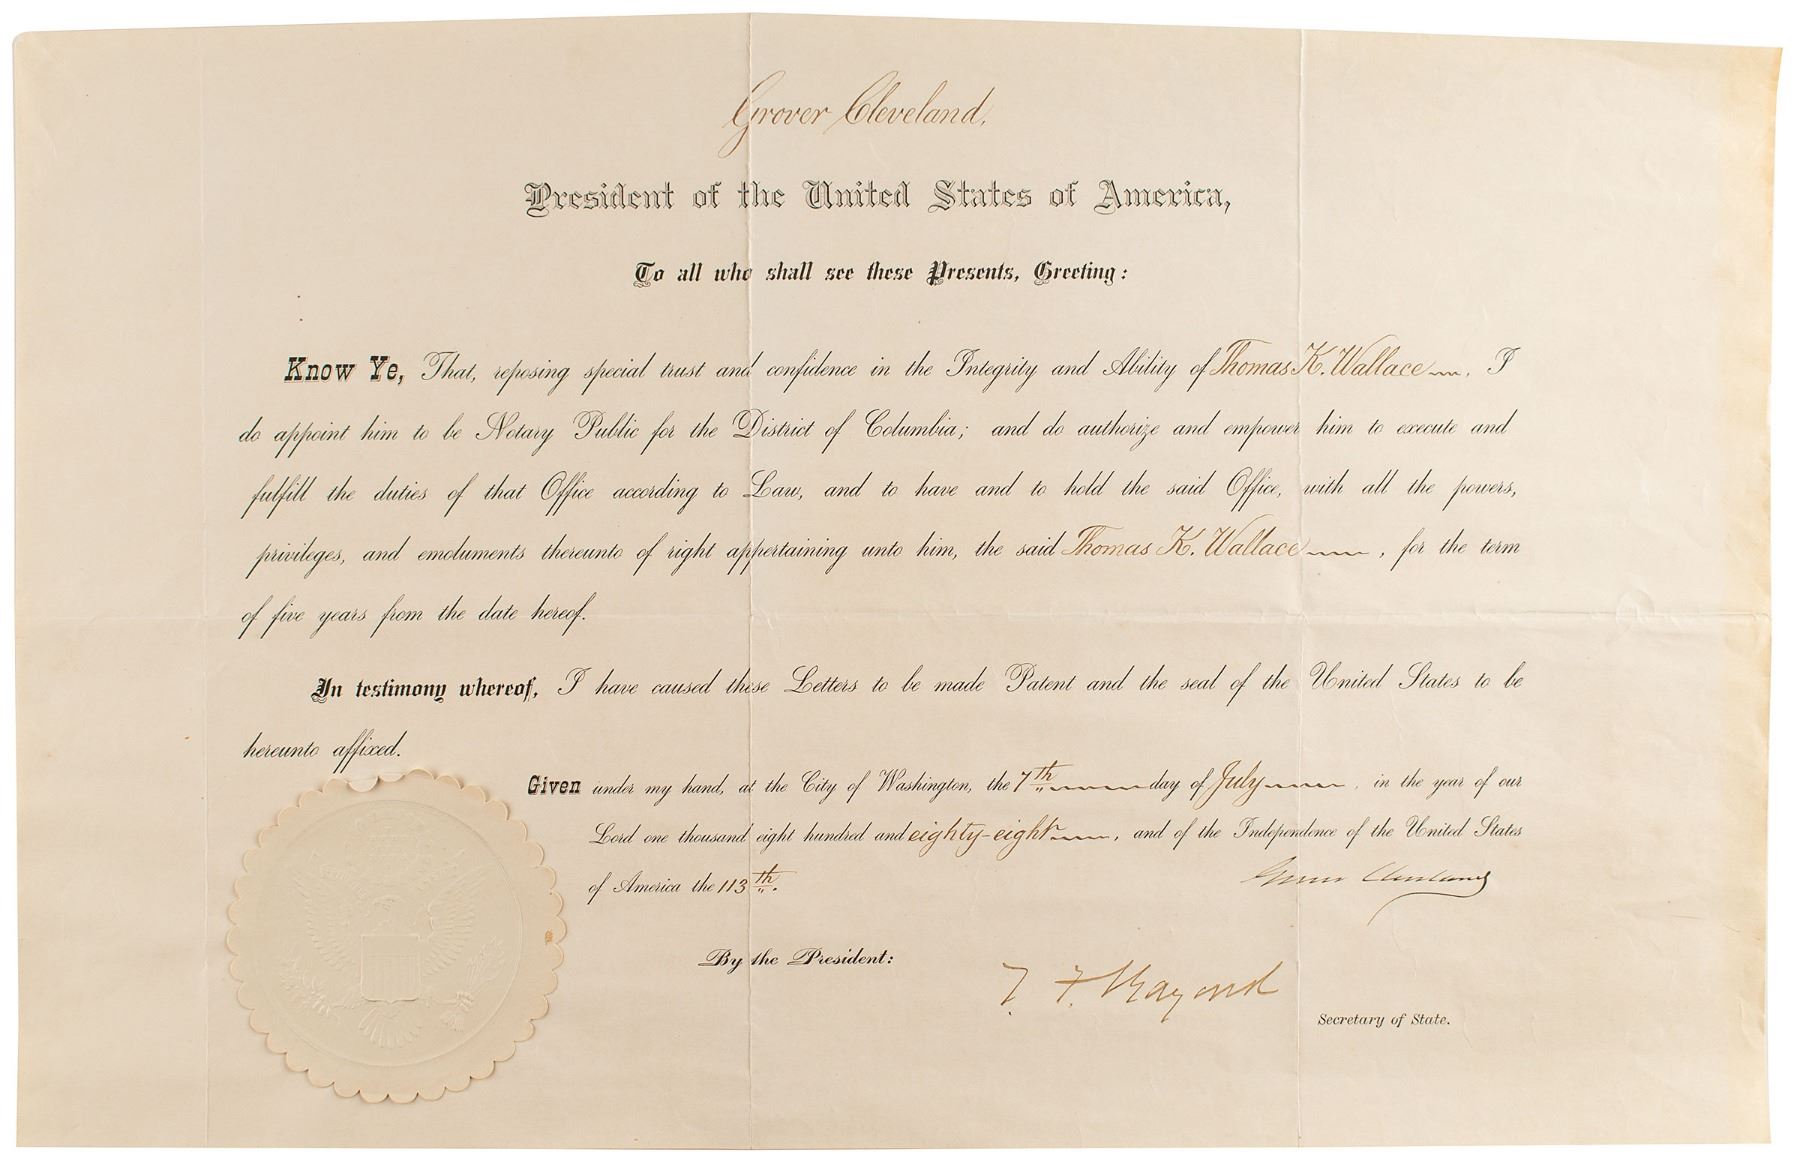 Grover Cleveland,
President of the United States of America,
To all who shall see these Presents, Greeting:
Know Ye, That, reposing special trust and confidence in the Integrity and Ability of Thomas K. Wallace, I
do appoint him to be Notary Public for the District of Columbia; and do authorize and empower him to execute and
fulfill the duties of that Office according to Law, and to have and to hold the said Office, with all the powers,
privileges, and emoluments thereunto of right appertaining unto him, the said Thomas K. Wallace, for the term
of five years from the date hereof.
In testimony whereof, I have caused these Letters to be made Patent and the seal of the United States to be
hereunto affixed.
Given under my hand, at the City of Washington, the 7th day of July, in the year of our
Lord one thousand eight hundred and eighty-eight, and of the Independence of the United States
of America the 113th.
Grover Cleveland
By the President:
T. F. Bayard
Secretary of State.